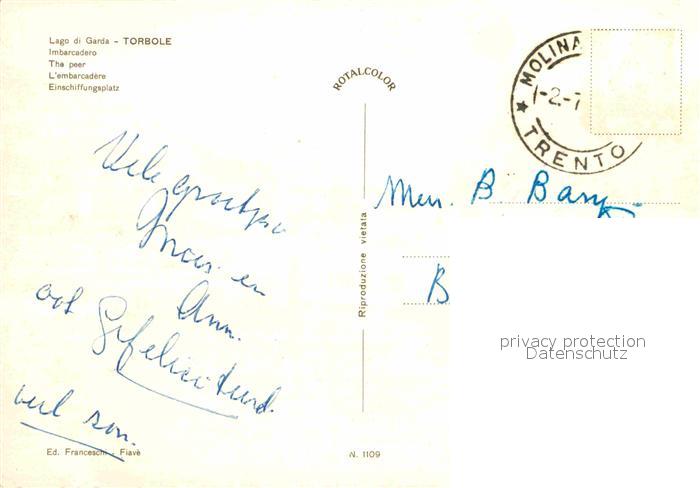 Lago di Garda - TORBOLE
Imbarcadero
The peer
L'embarcadère
Einschiffungsplatz
ROTALCOLOR
MOLINA
1-2-7
TRENTO
Vele groetjes
en
Ann.
ook Gefeliciteerd.
veel zon.
B. Barx
B
Riproduzione vietata
privacy protection
Datenschutz
Ed. Franceschi - Fiavè
N. 1109